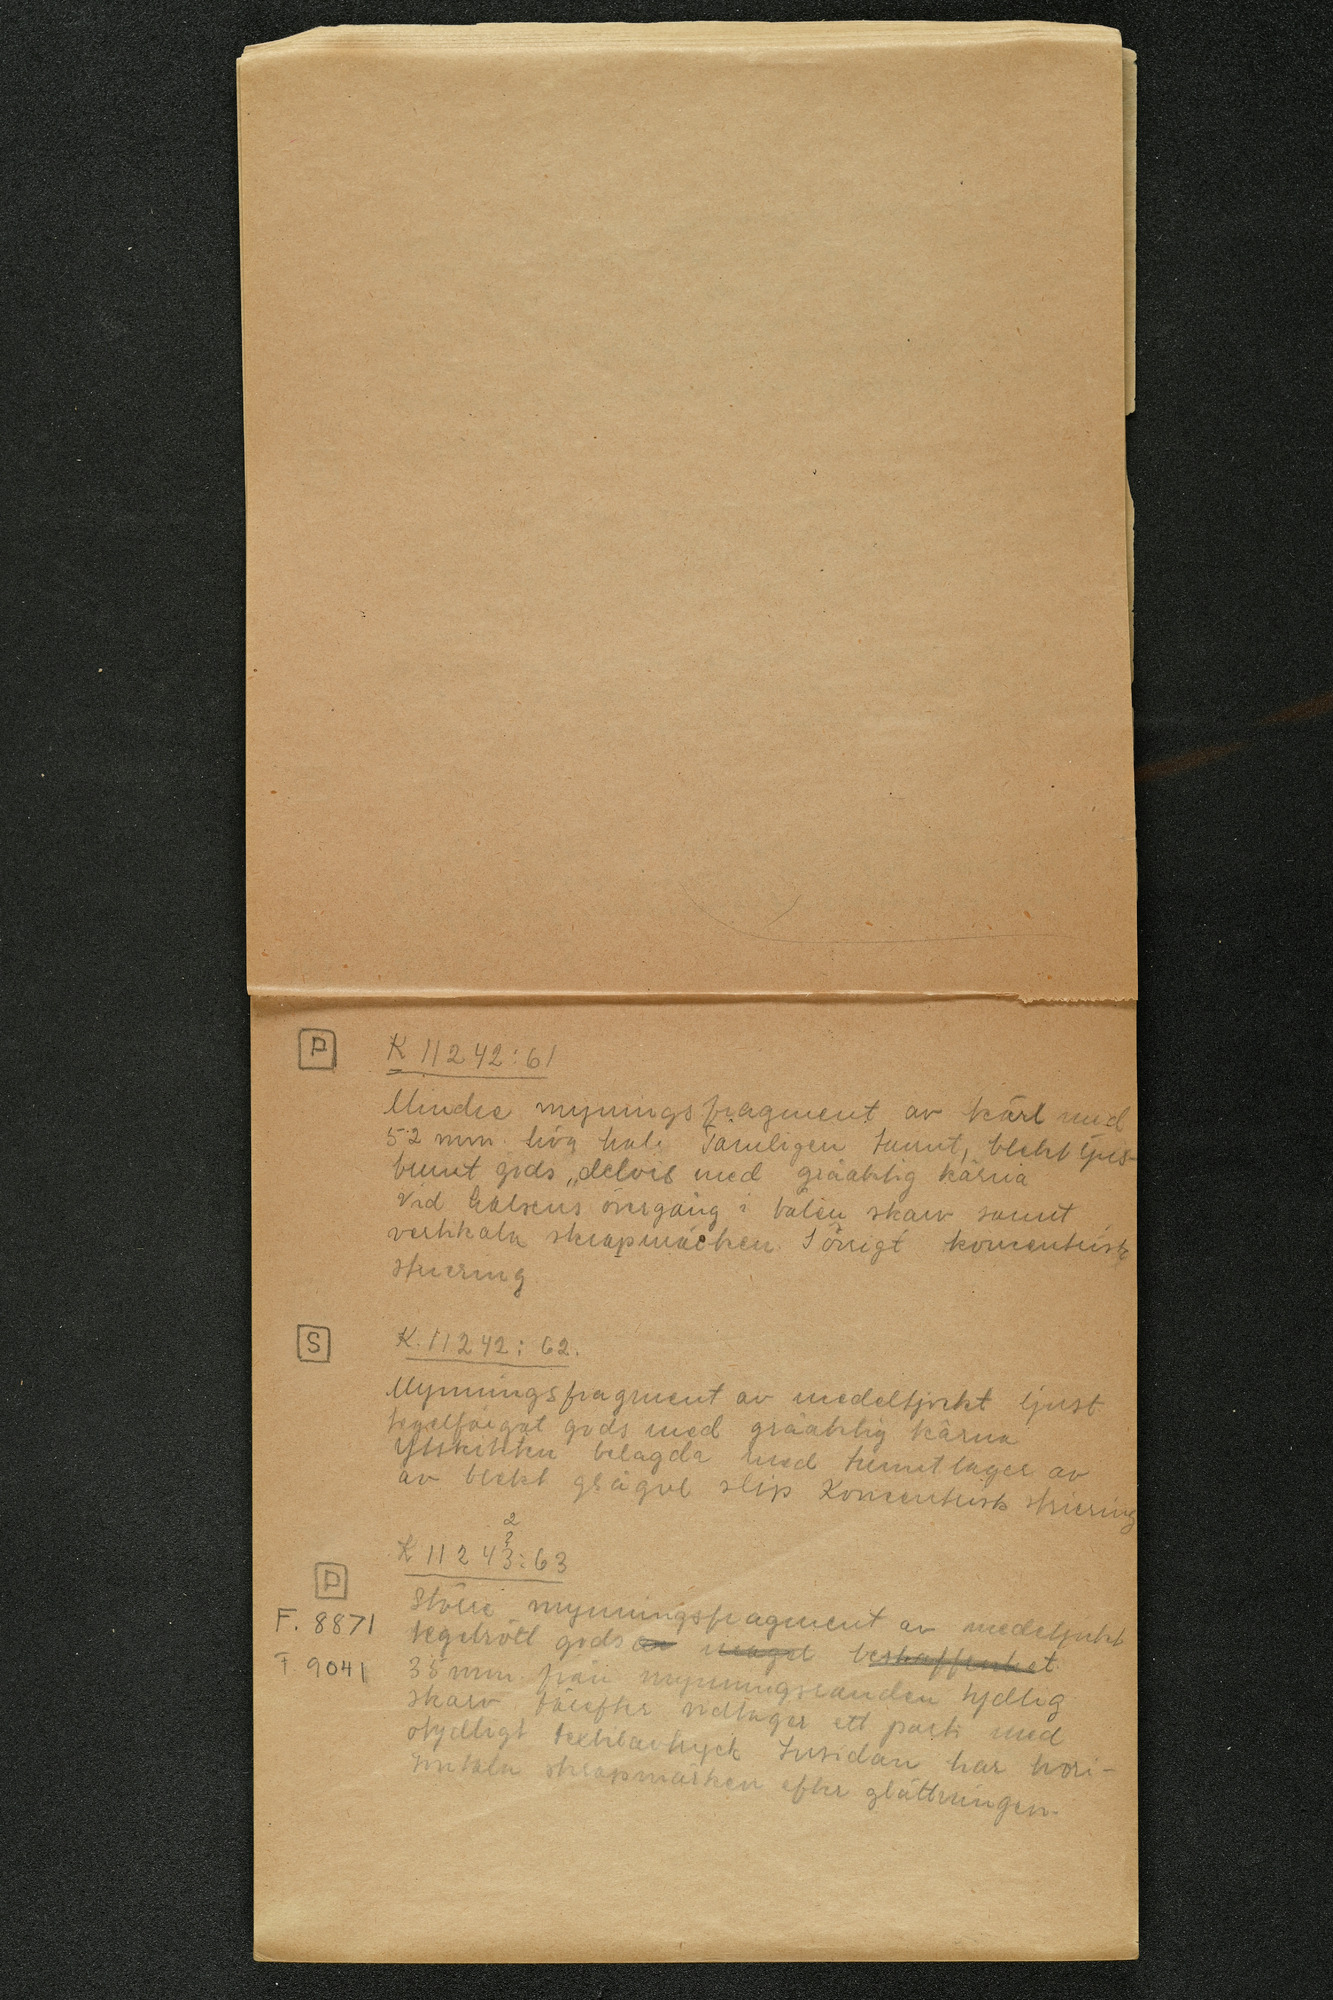 P K 11242:61
Mindre mynningsfragment av kärl med
52 mm hög hals Tämligen tunnt, blekt ljus
brunt gods, delvis med gråaktig kärna
Vid halsens övergång i bålen skarv samt
vertikala skrapmärken I övrigt koncentrisk
striering
S K. 11242: 62.
Mynningsfragment av medeltjockt ljust
tegelfärgat gods med gråaktig kärna
Ytskikten belagda med tunnt lager av
av blekt grågul slip Koncentrisk striering
2
?
K 11243:63
P
Större mynningsfragment av medeltjockt
F. 8871 tegelrött gods av beskaffenhet
F. 9041 35 mm från mynningsranden tydlig
skarv Därefter vidtager ett parti med
otydligt textilavtryck Insidan har hori-
sontala skrapmärken efter glättningen.